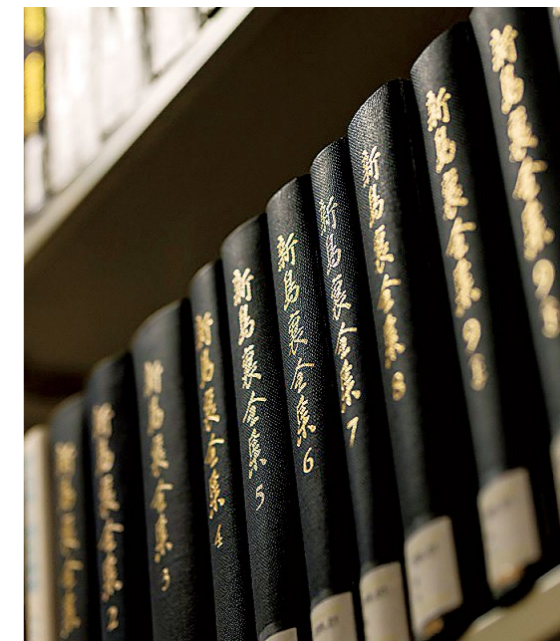 新島襄全集
新島襄全集 2
新島襄全集 3
新島襄全集 4
新島襄全集 5
新島襄全集 6
新島襄全集 7
新島襄全集 8
新島襄全集 9
新島襄全集 9